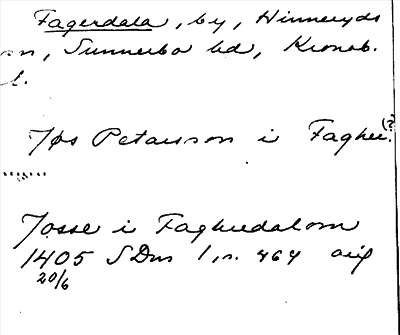 Fagerdala, by, Hinneryds
sn, Sunnerbo hd, Kronob.
l.
Jøs Petarsson i Faghe(?).
Josse i Faghredalom
1405 SDns 1, s. 464 orig
20/6